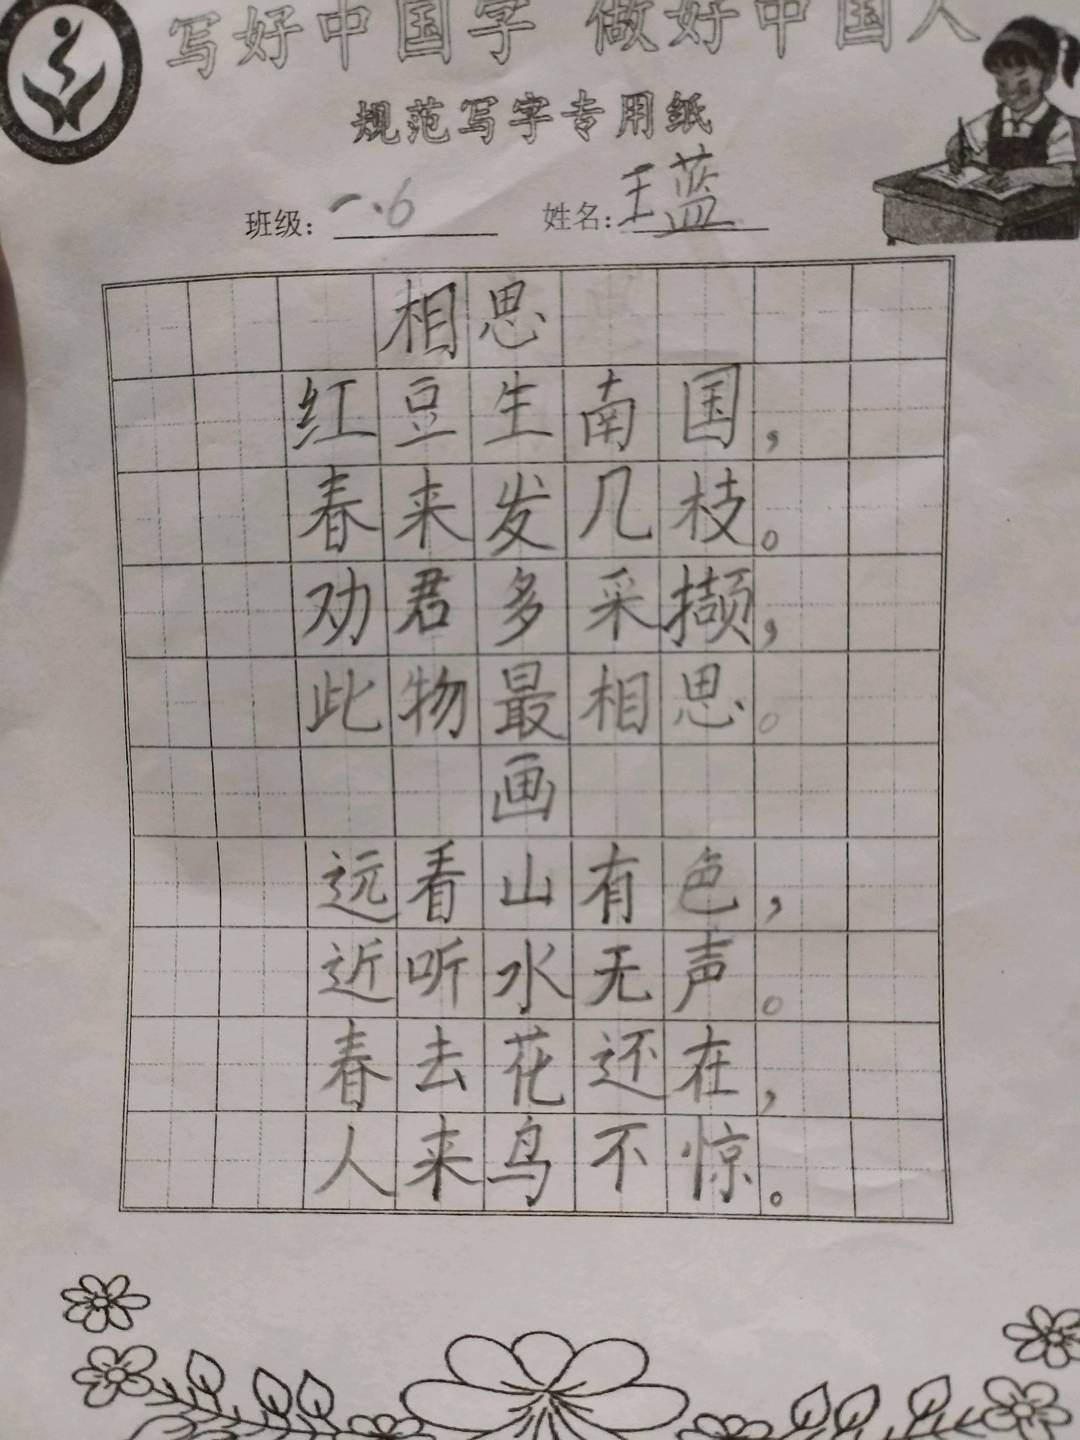 写好中国字 做好中国人
规范写字专用纸
班级: 一.6 姓名: 王蓝
相思
红豆生南国,
春来发几枝。
劝君多采撷,
此物最相思。
画
远看山有色,
近听水无声。
春去花还在,
人来鸟不惊。